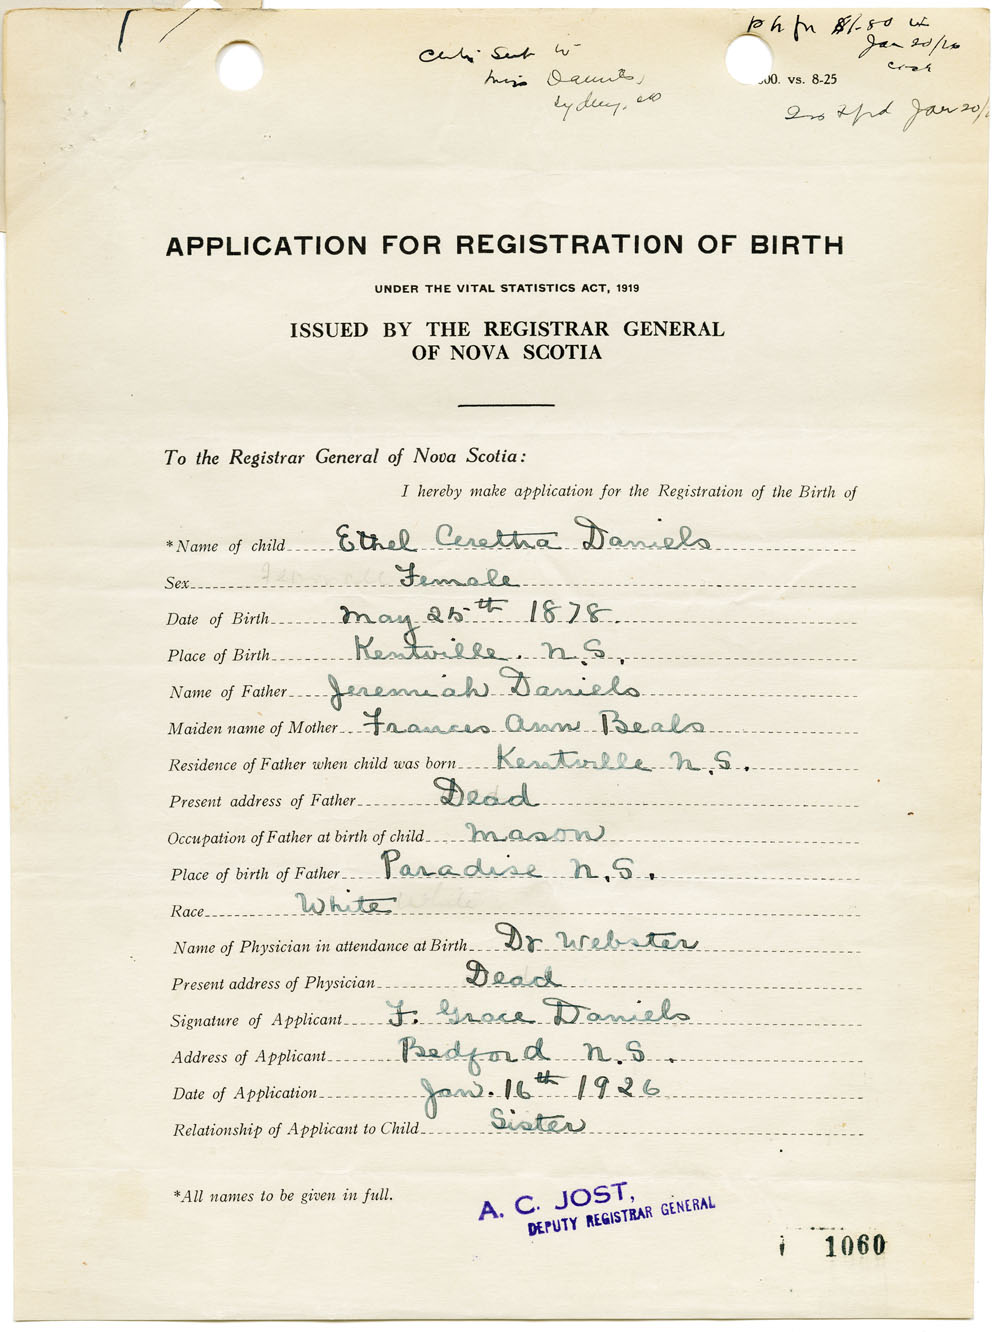 Sent to
Miss Daniels,
Sydney,
$1.80
Jan 20/26
cash
00. vs. 8-25
Jan 20/
APPLICATION FOR REGISTRATION OF BIRTH
UNDER THE VITAL STATISTICS ACT, 1919
ISSUED BY THE REGISTRAR GENERAL
OF NOVA SCOTIA
To the Registrar General of Nova Scotia:
I hereby make application for the Registration of the Birth of
*Name of child Ethel Ceretha Daniels
Sex Female
Date of Birth May 25th 1878.
Place of Birth Kentville. N.S.
Name of Father Jeremiah Daniels
Maiden name of Mother Frances Ann Beals
Residence of Father when child was born Kentville N.S.
Present address of Father Dead
Occupation of Father at birth of child Mason
Place of birth of Father Paradise N.S.
Race White
Name of Physician in attendance at Birth Dr Webster
Present address of Physician Dead
Signature of Applicant F. Grace Daniels
Address of Applicant Bedford N.S.
Date of Application Jan. 16th 1926
Relationship of Applicant to Child Sister
*All names to be given in full.
A. C. JOST,
DEPUTY REGISTRAR GENERAL
1060